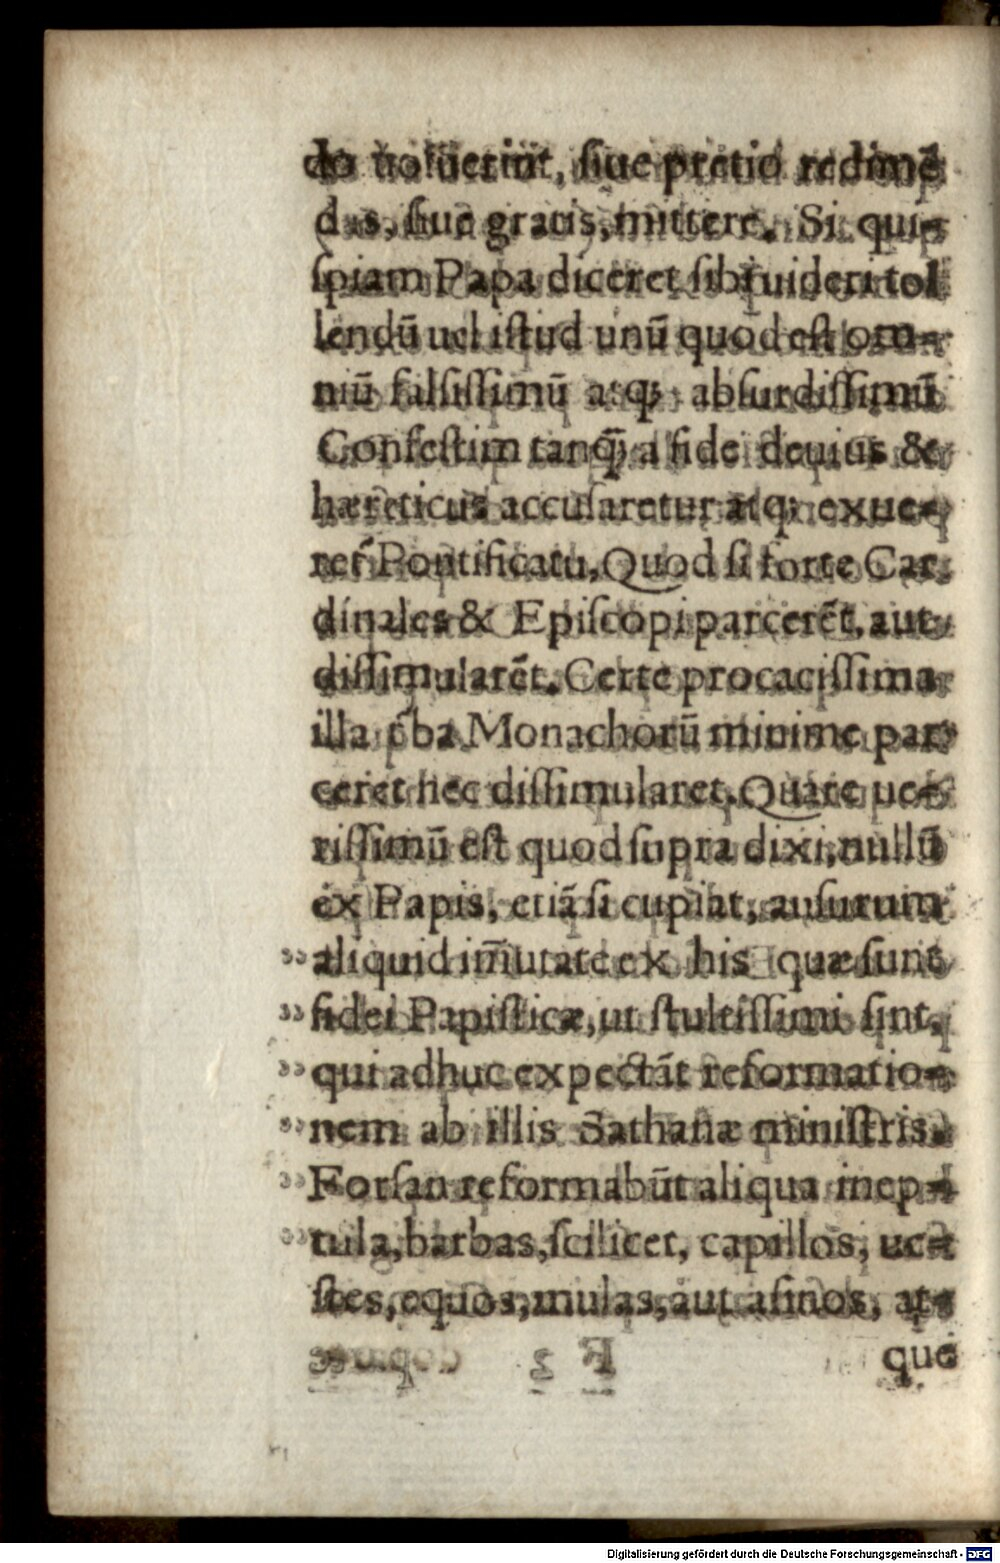 do uoluerint, siue pretio redimē
das, siue gratis, mittere. Si qui-
spiam Papa diceret sibi uideri tol
lendū uel istud unū quod est om-
niū falsissimū atq; absurdissimū
Confestim tanq̄ a fide deuius &
hæreticus accusaretur atq; exue-
ret̃ Pontificatu, Quod si forte Car,
dinales & Episcopi parcerēt, aut
dissimularēt. Certe procacissima
illa t̃ba Monachorū minime par
ceret nec dissimularet. Quare ue-
rissimū est quod supra dixi, nullū
ex Papis, etiā si cupiat, ausurum
„ aliquid im̄utare ex his quæ sunt
„ fidei Papisticæ, ut stultissimi sint,
„ qui adhuc expectāt reformatio-
„ nem ab illis Sathanæ ministris.
„ Forsan reformabūt aliqua inep-
„ tula, barbas, scilicet, capillos, ue-
stes, equos, mulas, aut asinos, at-
que
Digitalisierung gefördert durch die Deutsche Forschungsgemeinschaft - DFG